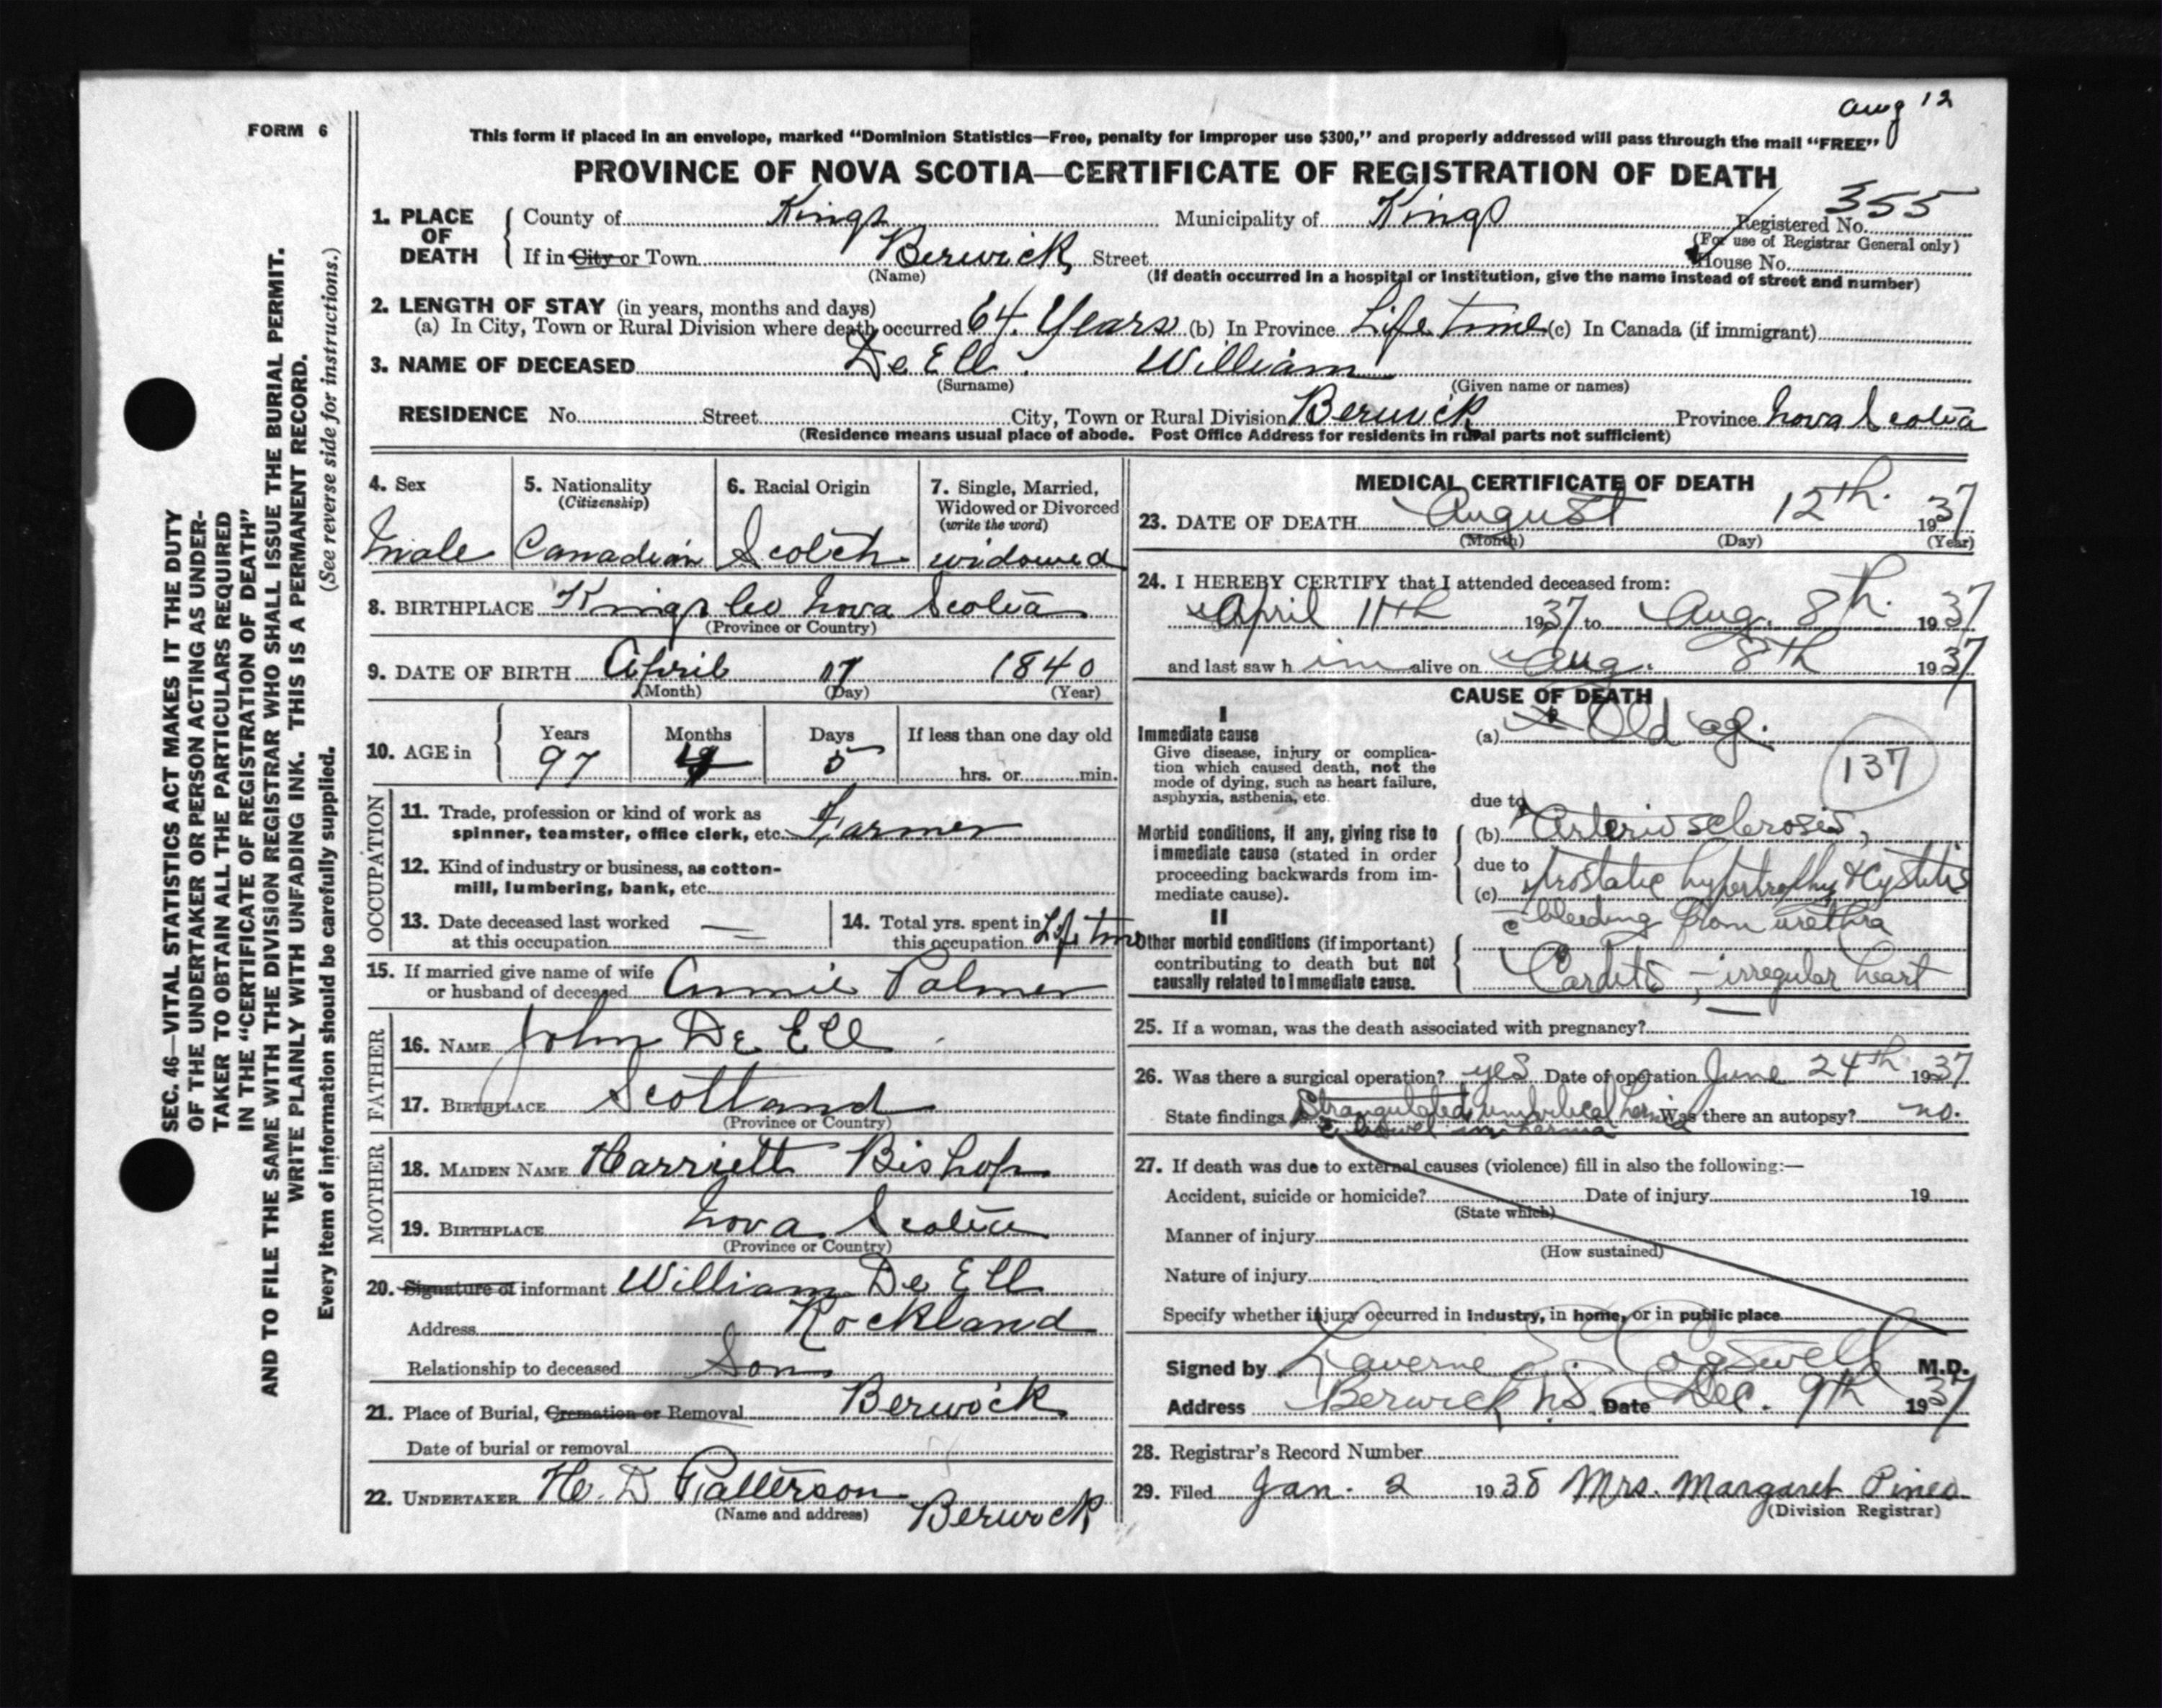 Aug 12
FORM 6
This form if placed in an envelope, marked “Dominion Statistics—Free, penalty for improper use $300,” and properly addressed will pass through the mail “FREE”
PROVINCE OF NOVA SCOTIA—CERTIFICATE OF REGISTRATION OF DEATH
1. PLACE OF DEATH County of Kings Municipality of Kings Registered No. 355
(For use of Registrar General only)
If in City or Town Berwick Street House No.
(Name) (If death occurred in a hospital or institution, give the name instead of street and number)
2. LENGTH OF STAY (in years, months and days)
(a) In City, Town or Rural Division where death occurred 64 Years (b) In Province Life time (c) In Canada (if immigrant)
3. NAME OF DECEASED De Ell William
(Surname) (Given name or names)
RESIDENCE No. Street City, Town or Rural Division Berwick Province Nova Scotia
(Residence means usual place of abode. Post Office Address for residents in rural parts not sufficient)
4. Sex 5. Nationality 6. Racial Origin 7. Single, Married,
(Citizenship) Widowed or Divorced
(write the word)
Male Canadian Scotch widowed
8. BIRTHPLACE Kings Co Nova Scotia
(Province or Country)
9. DATE OF BIRTH April 1840
(Month) (Day) (Year)
10. AGE in Years Months Days If less than one day old
97 4 5 hrs. or min.
OCCUPATION
11. Trade, profession or kind of work as
spinner, teamster, office clerk, etc. Farmer
12. Kind of industry or business, as cotton-
mill, lumbering, bank, etc.
13. Date deceased last worked 14. Total yrs. spent in
at this occupation — this occupation Life time
15. If married give name of wife
or husband of deceased Annie Palmer
FATHER
16. NAME John De Ell
17. BIRTHPLACE Scotland
(Province or Country)
MOTHER
18. MAIDEN NAME Harriett Bishop
19. BIRTHPLACE Nova Scotia
(Province or Country)
20. Signature of informant William De Ell
Address Rockland
Relationship to deceased Son
21. Place of Burial, Cremation or Removal Berwick
Date of burial or removal
22. UNDERTAKER H. D Patterson
(Name and address) Berwick
MEDICAL CERTIFICATE OF DEATH
23. DATE OF DEATH August 12th. 1937
(Month) (Day) (Year)
24. I HEREBY CERTIFY that I attended deceased from:
April 11th 1937 to Aug. 8th. 1937
and last saw h im alive on Aug. 8th 1937
CAUSE OF DEATH
I
Immediate cause (a) Old age.
Give disease, injury or complica-
tion which caused death, not the
mode of dying, such as heart failure,
asphyxia, asthenia, etc.
137
due to
Morbid conditions, if any, giving rise to (b) Arterio sclerosis,
immediate cause (stated in order due to
proceeding backwards from im- (c) prostatic hypertrophy & cystitis
mediate cause).
c bleeding from urethra
II
Other morbid conditions (if important)
contributing to death but not
causally related to immediate cause. Carditis, - irregular heart
25. If a woman, was the death associated with pregnancy?
26. Was there a surgical operation? yes Date of operation June 24th 1937
State findings Strangulated umbilical hernia Was there an autopsy? no.
c bowel in hernia
27. If death was due to external causes (violence) fill in also the following:—
Accident, suicide or homicide? Date of injury 19
(State which)
Manner of injury
(How sustained)
Nature of injury
Specify whether injury occurred in industry, in home, or in public place
Signed by Laverne Cogswell M.D.
Address Berwick N.S. Date Dec. 9th 1937
28. Registrar's Record Number
29. Filed Jan. 2 1938 Mrs. Margaret Pineo
(Division Registrar)
SEC. 46—VITAL STATISTICS ACT MAKES IT THE DUTY
OF THE UNDERTAKER OR PERSON ACTING AS UNDER-
TAKER TO OBTAIN ALL THE PARTICULARS REQUIRED
IN THE “CERTIFICATE OF REGISTRATION OF DEATH”
AND TO FILE THE SAME WITH THE DIVISION REGISTRAR WHO SHALL ISSUE THE BURIAL PERMIT.
WRITE PLAINLY WITH UNFADING INK. THIS IS A PERMANENT RECORD.
Every item of information should be carefully supplied. (See reverse side for instructions.)